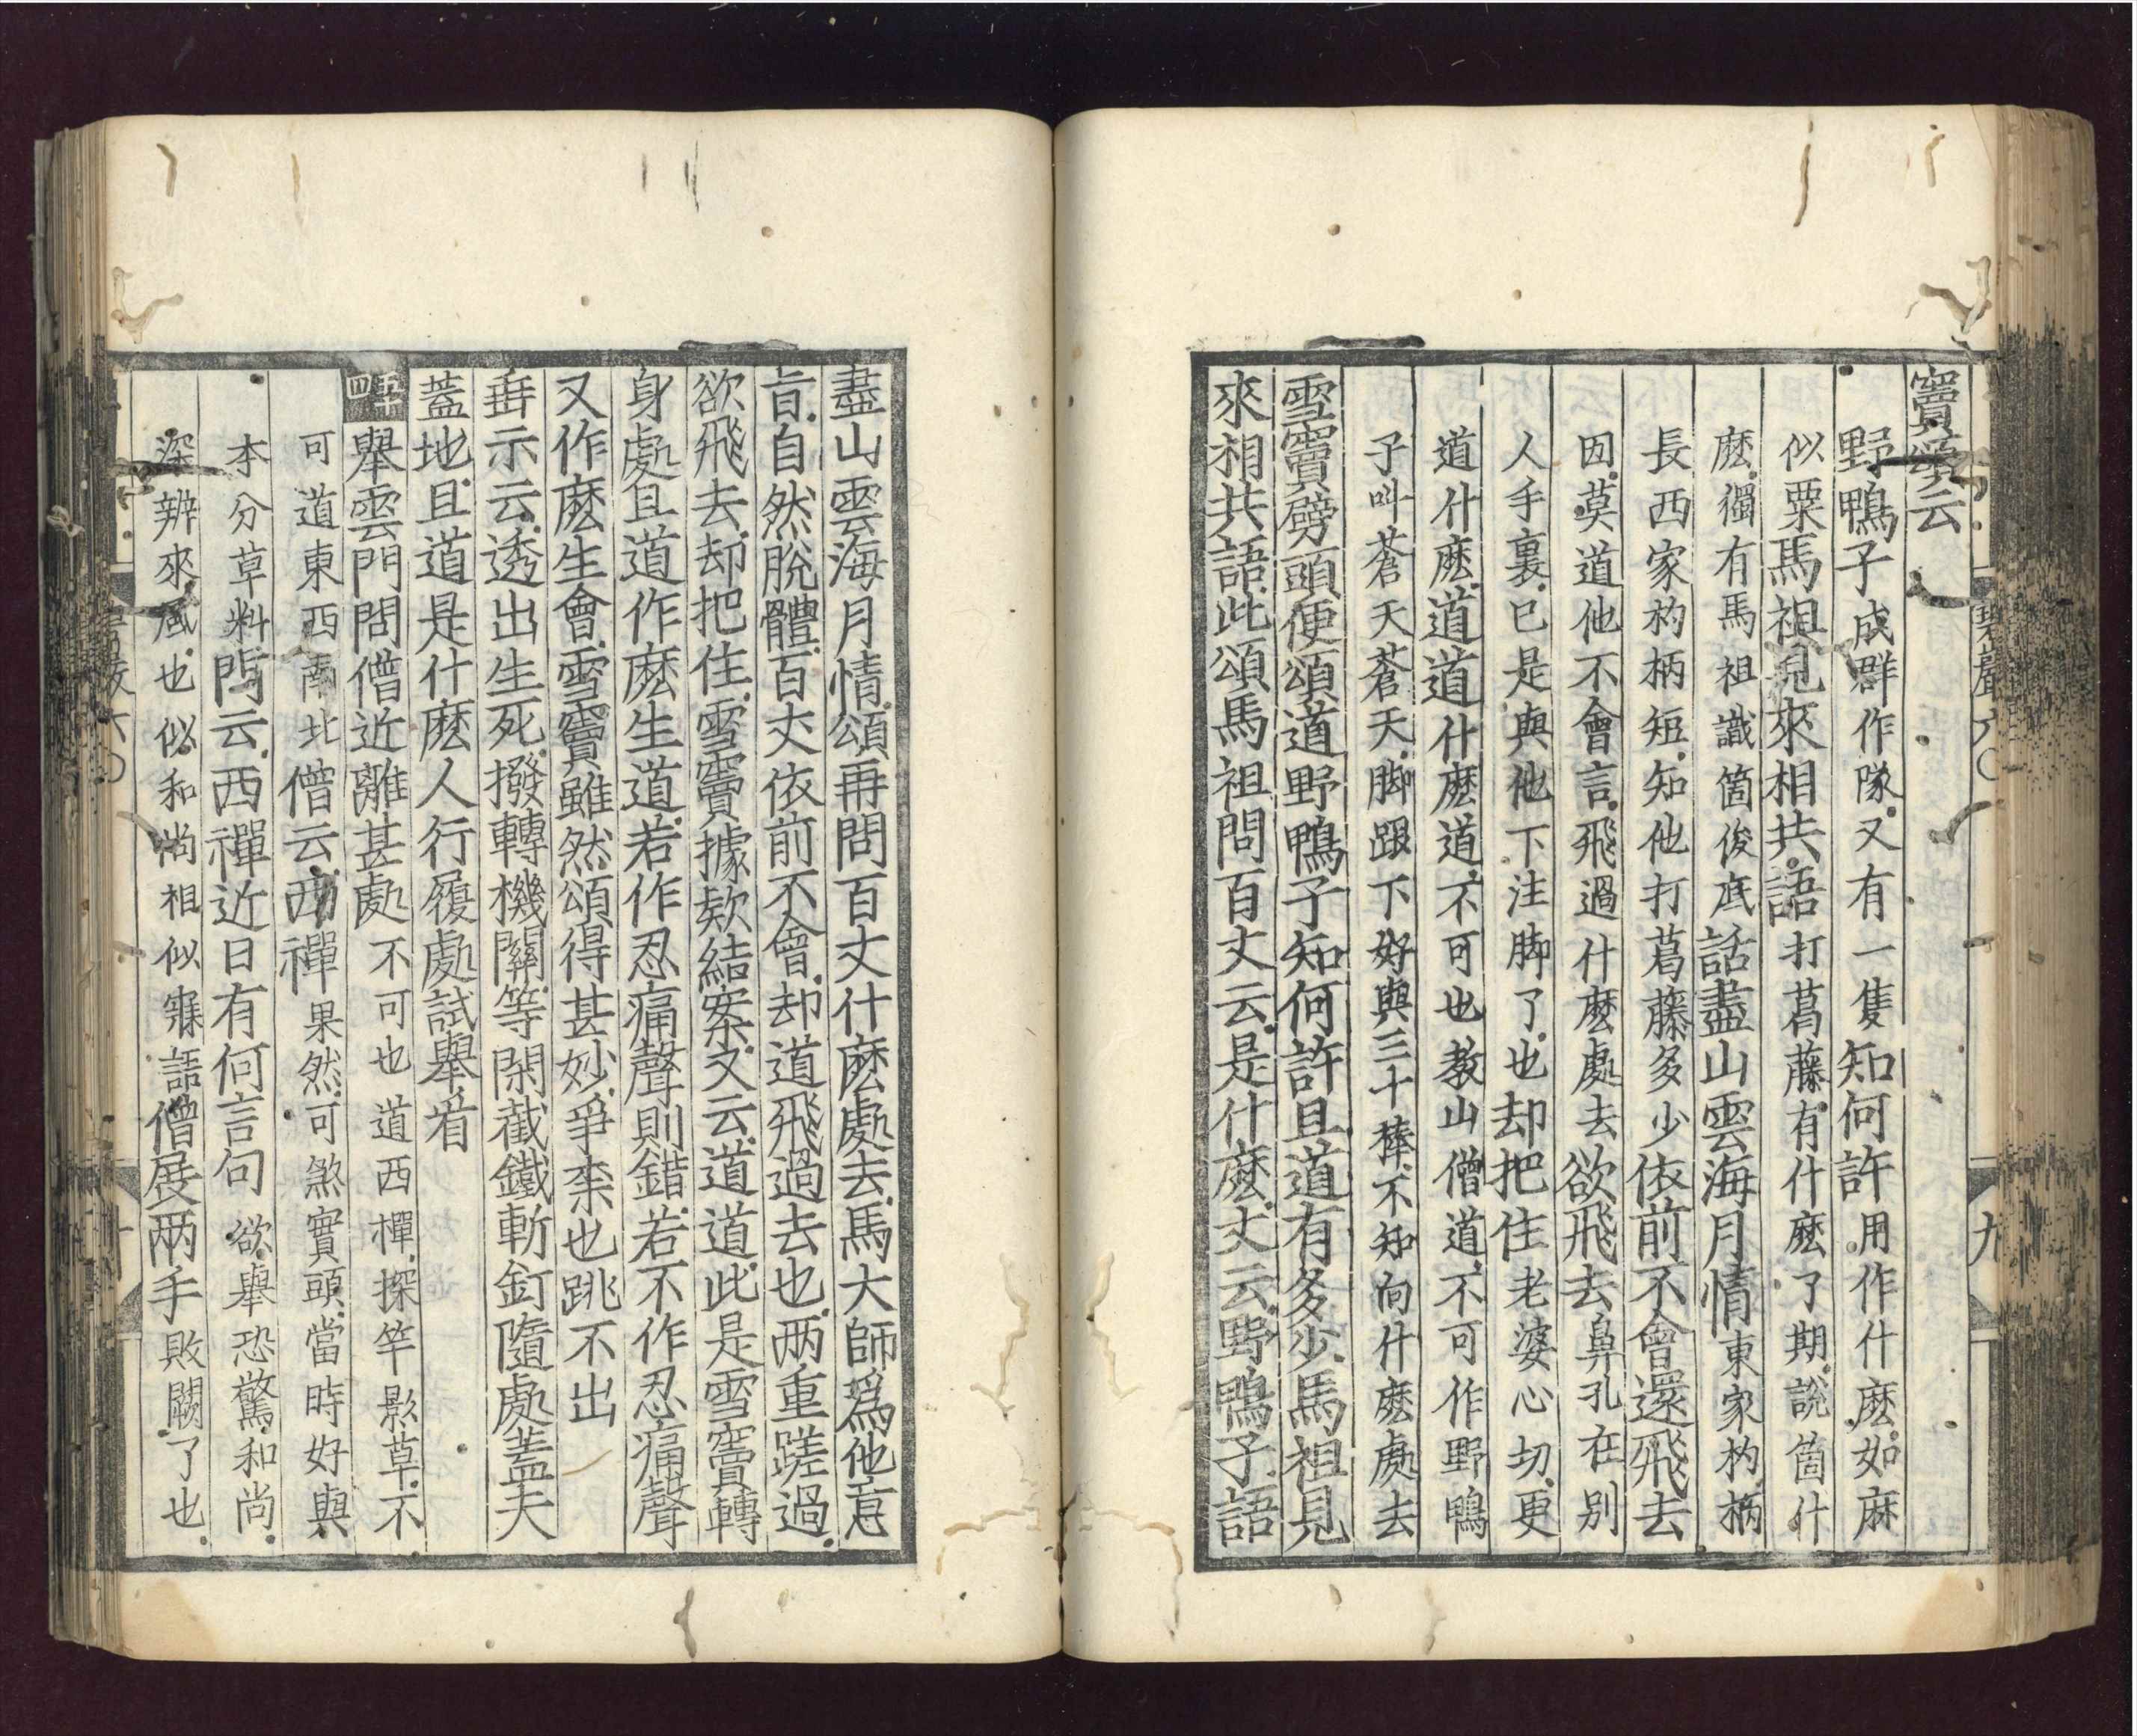 竇頌云
野鴨子成群作隊又有一隻知何許用作什麽如麻
似粟馬祖見來相共語打葛藤有什麽了期說箇什
麽獨有馬祖識箇俊底話盡山雲海月情東家杓柄
長西家杓柄短知他打葛藤多少依前不會還飛去
㘞莫道他不會言飛過什麽處去欲飛去鼻孔在別
人手裏已是與他下注脚了也却把住老婆心切更
道什麽道道什麽道不可也教山僧道不可作野鴨
子叫蒼天蒼天脚跟下好與三十棒不知向什麽處去
雪竇劈頭便頌道野鴨子知何許且道有多少馬祖見
來相共語此頌馬祖問百丈云是什麽丈云野鴨子語
碧巖六〇
九
盡山雲海月情頌再問百丈什麽處去馬大師爲他意
旨自然脫體百丈依前不會却道飛過去也兩重蹉過
欲飛去却把住雪竇據欵結案又云道道此是雪竇轉
身處且道作麽生道若作忍痛聲則錯若不作忍痛聲
又作麽生會雪竇雖然頌得甚妙爭柰也跳不出
垂示云透出生死撥轉機關等閑截鐵斬釘隨處蓋天
蓋地且道是什麽人行履處試舉看
五十四
舉雲門問僧近離甚處不可也道西禪探竿影草不
可道東西南北僧云西禪果然可煞實頭當時好與
本分草料門云西禪近日有何言句欲舉恐驚和尚
深辨來風也似和尚相似寐語僧展兩手敗闕了也